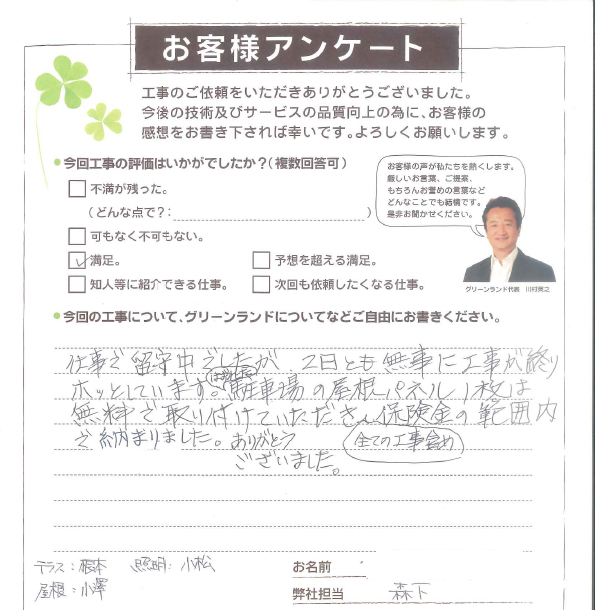 お客様アンケート
工事のご依頼をいただきありがとうございました。
今後の技術及びサービスの品質向上の為に、お客様の
感想をお書き下されば幸いです。よろしくお願いします。
今回工事の評価はいかがでしたか?(複数回答可)
不満が残った。
(どんな点で?: )
可もなく不可もない。
満足。
予想を超える満足。
知人等に紹介できる仕事。
次回も依頼したくなる仕事。
お客様の声が私たちを熱くします。
厳しいお言葉、ご提案、
もちろんお誉めの言葉など
どんなことでも結構です。
是非お聞かせください。
グリーンランド代表 川村英之
今回の工事について、グリーンランドについてなどご自由にお書きください。
仕事で留守中でしたが、2日とも無事に工事が終り
ホッとしています。駐車場の屋根パネル1枚は
無料で取り付けていただき、保険金の範囲内
で納まりました。ありがとう
全ての工事含め
ございました。
テラス:根本 照明:小松
屋根:小澤
お名前
弊社担当 森下